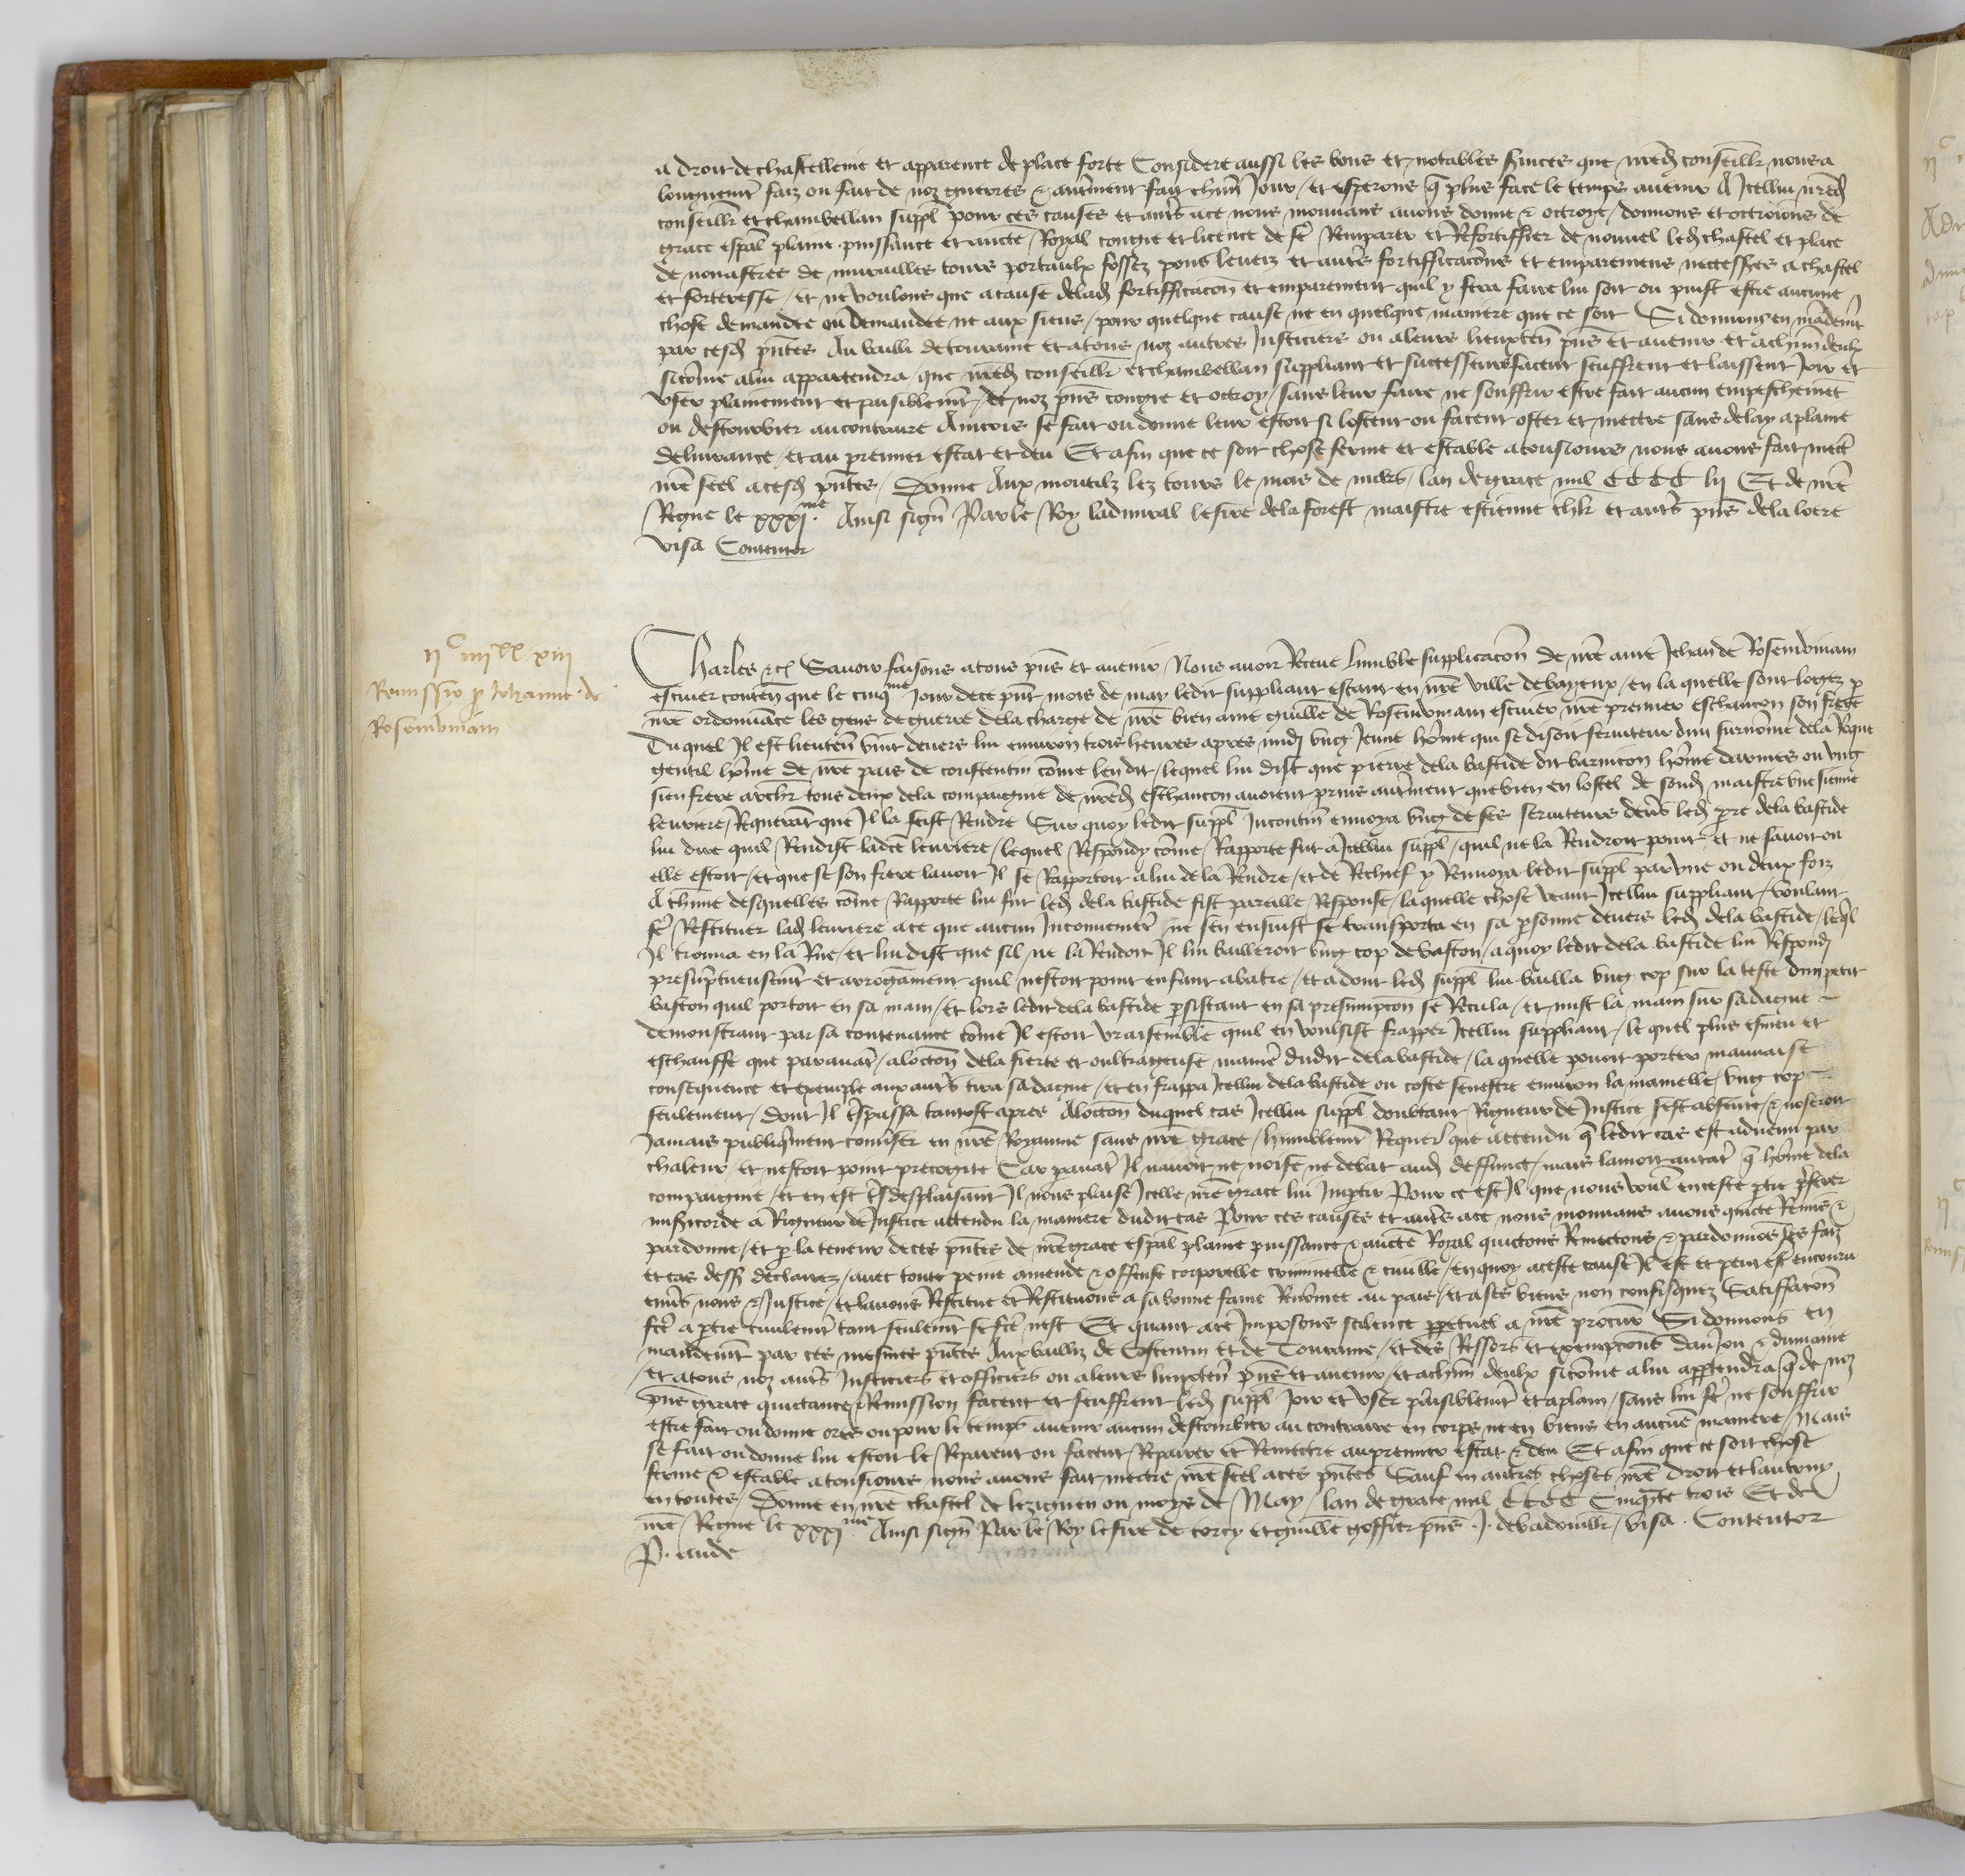 a droit de chastellenie et apparence de place forte Considere aussi les bons et notables suices que nred conseillr nous a
longuemt faiz ou fait de noz guerres & autrment fait chun Jour / et esperons q plus face le temps avenir A Icellui nred
conseillr et chambellan suppl pour ces causes et autrs ace nous mouvans avons donne & octroye / donnons et octroions de
grace espal plaine puissance et aucte Royal congie et licence de fe Remparer et Refortiffier de nouvel led chastel et place
de nonastres de murailles tours portaulx fossez pons leveiz et autrs fortifficacons et emparemens necessres a chastel
et forteresse / et ne voulons que a cause de lad fortifficacon et emparement quil y fera faire lui soit ou puist estre aucune
chose demandee ou demandee ne aux siens / pour quelque cause ne en quelque maniere que ce soit Si donnons en mandemt
par cesd pntes Au bailli de touraine et a tous noz autres Justiciers ou a leurs lieuxten pns et avenir et a chun deulx
si come a lui appartendra / que nred conseillr et chambellan suppliant et successeurs facent seuffrent et laissent Joir et
user plainement et paisiblemt de noz pns congie et octroy / sans leur faire ne souffrir estre fait aucun empeschemet
ou destourbier au contraire Aincois se fait ou donne leur estoit si lostent ou facent oster et mectre sans delay a plaine
delivrance / et au premier estat et deu Et afin que ce soit chose ferme et estable a tousiours nous avons fait mectr
nre seel a cesd pntes / Donne Aux montilz lez tours le mois de mars / lan de grace mil CCCC lij Et de nre
Regne le xxxjme Ainsi sign Par le Roy ladmiral le sire de la forest maistre estienne chlr et autrs pns de la loere
visa Contentor
ijC iiijxx xiij
Remissio p Johanne de
Rosenvinian
Charles &c Savoir faisons a tous pns et avenir Nous avoir Receue lumble supplicacon de nre ame Jehan de Rosenvinian
escuier conten que le cinqme Jour de ce pnt mois de may ledit suppliant estant en nre ville de bayeux / en la quelle sont logez p
nre ordonnance les gens de guerre de la charge de nre bien ame guille de Rosenvinian escuier nre premier eschancon son frere
Du quel Il est lieuten vint devers lui environ trois heures apres midj ung Jeune home qui se disoit serviteur dun surnome de la Roque
gentil home de nre pais de constentin come len dit / lequel lui dist que pierre de la bastide dit barnicon home darmes ou ung
sien frere archr tous deux de la compaignie de nred eschancon avoient prins autrment que bien en lostel de sond maistre une sienne
levriere / Requerat que Il la feist Rendre Sur quoy ledit suppl Incontin envoya ung de ses serviteurs devrs led pre de la bastide
lui dire quil Rendist ladce levriere / lequel Respondy come Rapporte fut a Icellui suppl / quil ne la Rendroit point et ne savoit ou
elle estoit / et que se son frere lavoit Il se Rapportoit a lui de la Rendre / et de Rechief y Renvoya ledit suppl par une ou deux foiz
A chune desquelles come Rapporte lui fut led de la bastide fist pareille Response / laquelle chose veant Icellui suppliant / voulant
fe Restituer lad levriere a ce que aucun Inconvenient ne sen ensuist se transporta en sa psonne devers led de la bastide / leql
Il trouva en la Rue / et lui dist que sil ne la Rendoit Il lui bailleroit ung cop de baston / a quoy ledit de la bastide lui Respondj
presumptueusemt et arrogament quil nestoit point enfant a batre / et adont led suppl lui bailla ung cop sur la teste dun petit
baston quil portoit en sa main / et lors ledit de la bastide psistant en sa presumpcon se Recula / et mist la main sur sa dague
demonstrant par sa contenance come Il estoit vraisemble quil en voulsist frapper Icellui suppliant / le quel plus esmeu et
eschauffe que paravat / a loccon de la fierte et oultrageuse manie dudit de la bastide / la quelle povoit porter mauvaise
consequence et exemple aux autrs tira sa dague / et en frappa Icellui de la bastide ou coste senestre environ la mamelle / ung cop
seulement / dont Il tspassa tantost apres A loccon duquel cas Icellui suppl doubtant Rigueur de Justice sest absente / & noseroit
Jamais publiqment converser en nre Royaume sans nre grace / humblemt Requert que attendu q ledit cas est advenu par
chaleur / et nestoit point precogite Car pavat Il navoit ne noise ne debat aud deffunct / mais lamoit autat q home de la
compaignie / et en est ts desplaisant Il nous plaise Icelle nre grace lui Imptir Pour ce est Il que nous voul en ceste ptie pferer
misicorde a Rigueur de Justice attendu la maniere dudit cas Pour ces causes et autrs ace nous mouvans avons quicte Remis &
pardonne / et p la teneur de ces pntes de nre grace espal plaine puissance & aucte Royal quictons Remectons & pardonnos les faiz
et cas dess declairez / avec toute peine amende & offense corporelle criminelle & civille / en quoy a ceste cause Il est et peut est encouru
envrs nous & Justice / et lavons Restitue et Restituons a sa bonne fame Renomee au pais / et a ses biens non confisquez Satiffacon
fce a ptie civilemt tant seulemt se fce nest Et quant a ce Imposons scilence ppetuel a nre procur Si donnons en
mandemt par ces mesmes pntes Aux bailliz de Costentin et de Touraine / et des Ressors et exempcons danjou & du maine
/ et a tous noz autrs Justiciers et officiers ou a leurs lieuxten pns et avenir / et a chun deulx si come a lui apptendra q de noz
pns grace quictance & Remission facent et seuffrent led suppl Joir et user paisiblemt et a plain / sans lui fe ne souffrir
estre fait ou donne ores ou pour le temps avenir aucun destourbier au contraire en corps ne en biens en aucue maniere / Mais
se fait ou donne lui estoit le Reparent ou facent Reparer et Remectre au premier estat & deu Et afin que ce soit chose
ferme & estable a tousiours nous avons fait mectre nre seel a ces pntes Sauf en autres choses nre droit et lautruy
en toutes / Donne en nre chastel de leziguen ou moys de May / lan de grace mil CCCC Cinqte trois Et de
nre Regne le xxxjme Ainsi sign Par le Roy le sire de torcy et guille goffier pns . J . de badouillr / visa . Contentor
P . aude